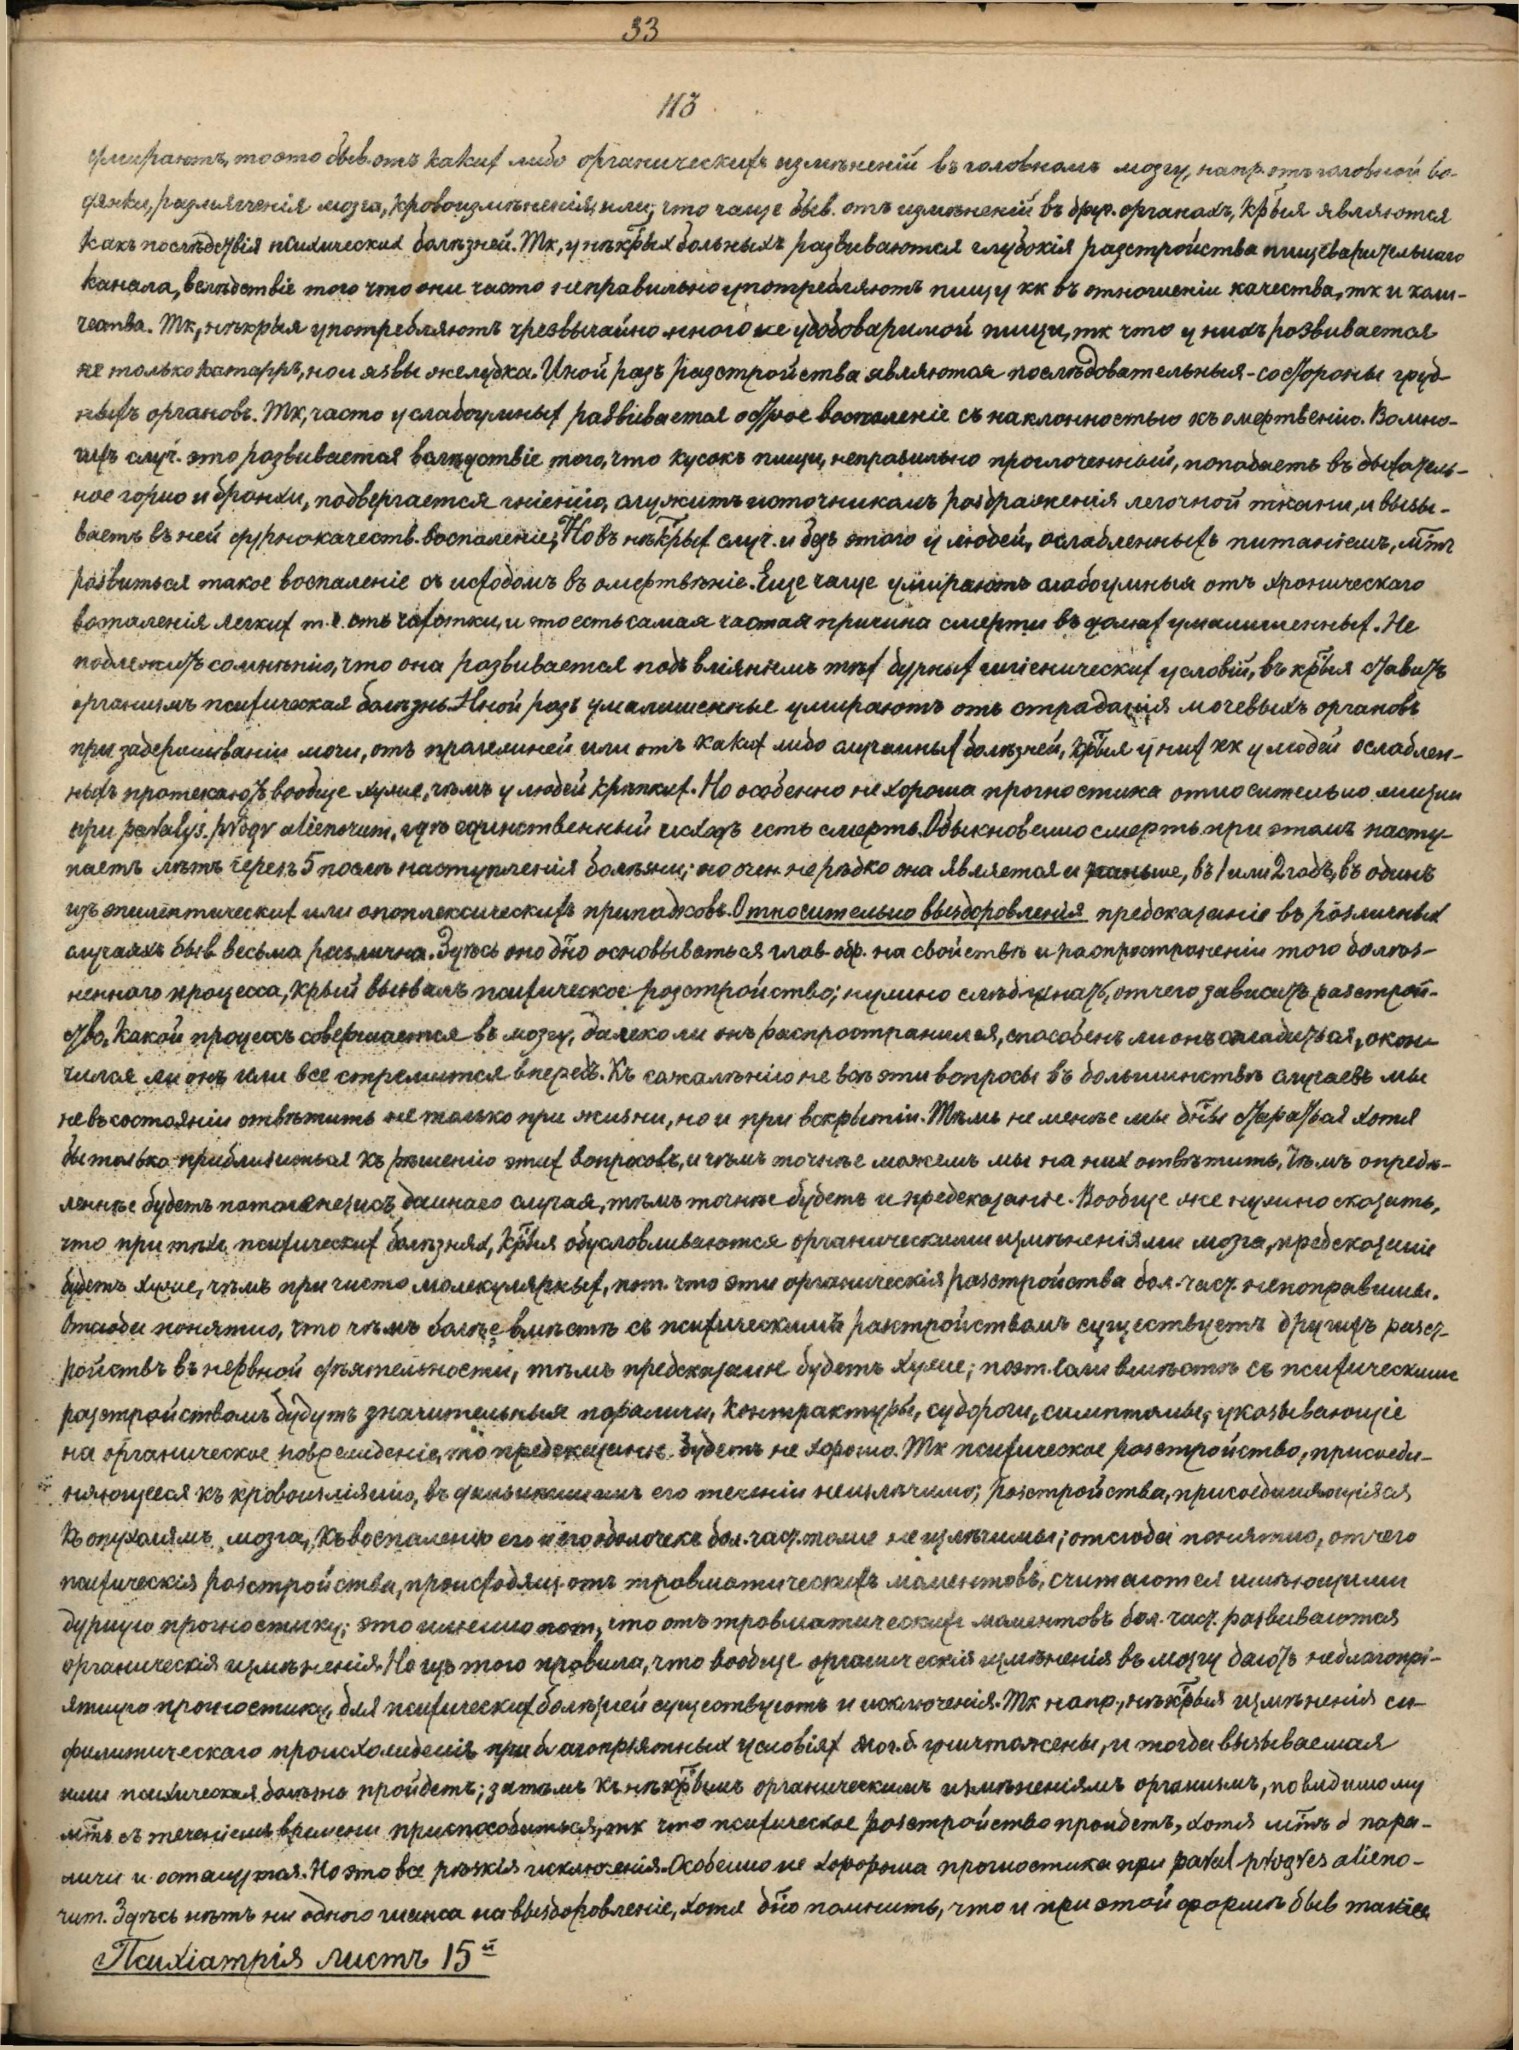 33
113
умираютъ, то это быв. отъ какихъ либо органическихъ измѣненій въ головномъ мозгу, напр. отъ головной во-
дянки, размягченія мозга, кровоизмѣненія, или, что чаще быв. отъ измѣненій въ друг. органахъ, кр̃ыя являются
какъ послѣдствія психическихъ болѣзней. Тк, у нѣкр̃ыхъ больныхъ развиваются глубокія разстройства пищеварительнаго
канала, вслѣдствіе того что они часто неправильно употребляютъ пищу кк въ отношеніи качества, тк и коли-
чества. Тк, нѣкрыя употребляютъ чрезвычайно много не удобоваримой пищи, тк что у нихъ развивается
не только катарръ, но и язвы желудка. Иной разъ разстройства являются послѣдовательныя - со стороны груд-
ныхъ органовъ. Тк, часто у слабоумныхъ развивается острое воспаленіе съ наклонностью къ омертвенію. Во мно-
гихъ случ. это развивается вслѣдствіе того, что кусокъ пищи, неправильно проглоченный, попадаетъ въ дыхатель-
ное горло и бронхи, подвергается гніенію, служитъ источникомъ раздраженія легочной ткани, и вызы-
ваетъ въ ней дурнокачеств. воспаленіе; Но въ нѣкр̃ыхъ случ. и безъ этого у людей, ослабленныхъ питаніемъ, м̃тъ
развиться такое воспаленіе съ исходомъ въ омертвѣніе. Еще чаще умираютъ слабоумныя отъ хроническаго
воспаленія легкихъ т. е. отъ чахотки, и это есть самая частая причина смерти въ домахъ умалишенныхъ. Не
подлежитъ сомнѣнію, что она развивается подъ вліяніемъ тѣхъ дурныхъ гигіеническихъ условій, въ кр̃ыя ставитъ
организмъ психическая болѣзнь. Иной разъ умалишенные умираютъ отъ страданія мочевыхъ органовъ
при задерживаніи мочи, отъ пролежней или отъ какихъ либо случайныхъ болѣзней, кр̃ыя у нихъ кк у людей ослаблен-
ныхъ протекаютъ вообще хуже, чѣмъ у людей крѣпкихъ. Но особенно не хороша прогностика относительно жизни
при paralys. progr alienorum, гдѣ единственный исходъ есть смерть. Обыкновенно смерть при этомъ насту-
паетъ лѣтъ черезъ 5 послѣ наступленія болѣзни; но очен. не рѣдко она является и раньше, въ 1 или 2 годъ, въ одинъ
изъ эпилептическихъ или апоплексическихъ припадковъ. Относительно выздоровленія предсказаніе въ различныхъ
случаяхъ быв весьма различна. Здѣсь оно д̃но основываться глав. обр. на свойствѣ и распространеніи того болѣз-
неннаго процесса, крый вызвалъ психическое разстройство; нужно слѣд знать, отчего зависитъ разстрой-
ство, какой процессъ совершается въ мозгу, далеко ли онъ распространился, способенъ ли онъ сгладиться, окон-
чился ли онъ или все стремится впередъ. Къ сожалѣнію не всѣ эти вопросы въ большинствѣ случаевъ мы
не въ состояніи отвѣтить не только при жизни, но и при вскрытіи. Тѣмъ не менѣе мы д̃ны стараться хотя
бы только приблизиться къ рѣшенію этихъ вопросовъ, и чѣмъ точнѣе можемъ мы на них отвѣтить, чѣмъ опредѣ-
леннѣе будетъ патогенезисъ даннаго случая, тѣмъ точнѣе будетъ и предсказаніе. Вообще же нужно сказать,
что при тѣхъ психическихъ болѣзняхъ, кр̃ыя обусловливаются органическими измѣненіями мозга, предсказаніе
будетъ хуже, чѣмъ при чисто молекулярныхъ, пот. что эти органическія разстройства бол. част. непоправимы.
Отсюда понятно, что чѣмъ болѣе вмѣстѣ съ психическимъ разстройствомъ существуетъ другихъ разст-
ройствъ въ нервной дѣятельности, тѣмъ предсказаніе будетъ хуже; поэт. если вмѣстѣ съ психическимъ
разстройствомъ будутъ значительныя параличи, контрактуры, судороги, симптомы, указывающіе
на органическое поврежденіе, то предсказаніе будетъ не хорошо. Тк психическое разстройство, присоеди-
няющееся къ кровоизліянію, въ дальнѣйшемъ его теченіи неизлѣчимо; разстройства, присоединяющіяся
къ опухолямъ мозга, къ воспаленію его и его оболочекъ бол. част. тоже не излѣчимы; отсюда понятно, отчего
психическія разстройства, происходящ. отъ травматическихъ моментовъ, считаются имѣющими
дурную прогностику; это именно пот, что отъ травматическихъ моментовъ бол. част. развиваются
органическія измѣненія. Но изъ этого правила, что вообще органическія измѣненія въ мозгу даютъ неблагопрі-
ятную прогностику, для психическихъ болѣзней существуютъ и исключенія. Тк напр., нѣкр̃ыя измѣненія си-
филитическаго происхожденія при благопріятныхъ условіяхъ мог. б. уничтожены, и тогда вызываемая
ими психическая болѣзнь пройдетъ; затѣмъ къ нѣкр̃ымъ органическимъ измѣненіямъ организмъ, повидимому
м̃тъ съ теченіемъ времени приспособиться, тк что психическое разстройство пройдетъ, хотя м̃тъ б пара-
личи и останутся. Но это все рѣзкія исключенія. Особенно не хороша прогностика при paral. progres alieno-
rum. Здѣсь нѣтъ ни одного шанса на выздоровленіе, хотя д̃но помнить, что и при этой формѣ быв такіе
Психіатрія листъ 15й